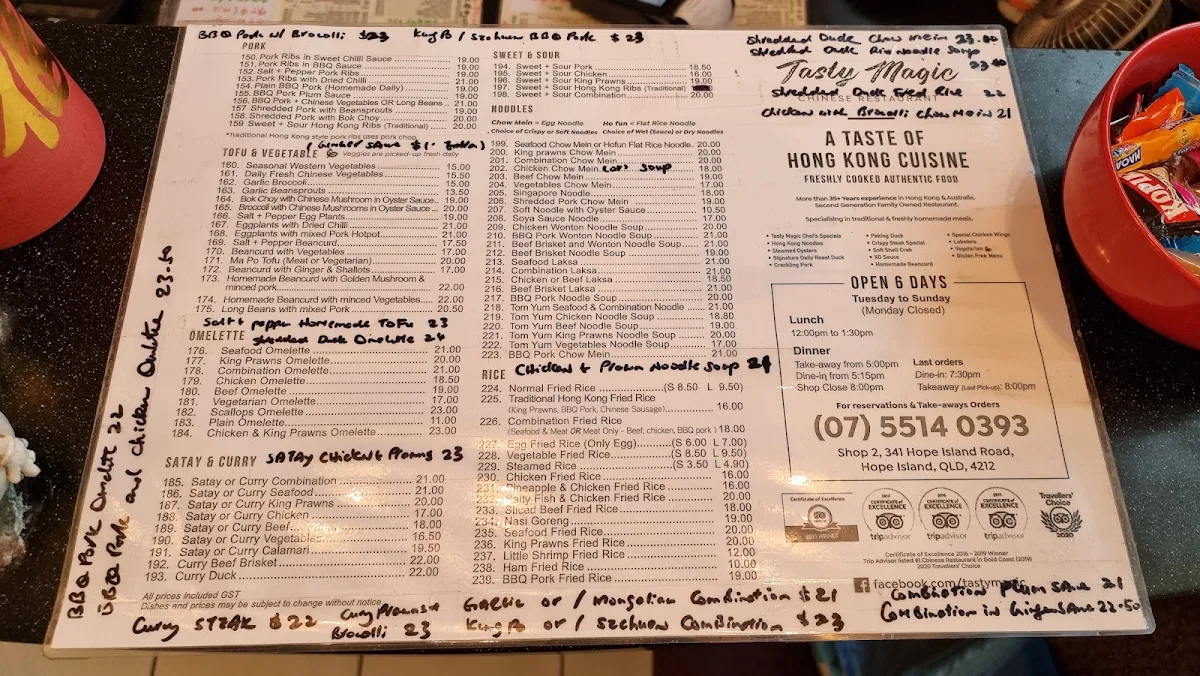 BBQ Pork w/ Brocolli $23
PORK
150. Pork Ribs in Sweet Chilli Sauce 19.00
151. Pork Ribs in BBQ Sauce 19.00
152. Salt + Pepper Pork Ribs 19.00
153. Pork Ribs with Dried Chilli 21.00
154. Plain BBQ Pork (Homemade Daily) 19.00
155. BBQ Pork Plum Sauce 19.00
156. BBQ Pork + Chinese Vegetables OR Long Beans 21.00
157 Shredded Pork with Beansprouts 19.00
158. Shredded Pork with Bok Choy 20.00
159 Sweet + Sour Hong Kong Ribs (Traditional) 20.00
*Traditional Hong Kong style pork ribs uses pork chop
(Ginger Sauce $1
TOFU & VEGETABLE Veggies are picked-up fresh daily
160. Seasonal Western Vegetables 15.00
161. Daily Fresh Chinese Vegetables 15.50
162. Garlic Broccoli 15.00
163. Garlic Beansprouts 13.50
164. Bok Choy with Chinese Mushroom in Oyster Sauce 19.00
165. Broccoli with Chinese Mushrooms in Oyster Sauce 20.00
166. Salt + Pepper Egg Plants 19.00
167. Eggplants with Dried Chilli 21.00
168. Eggplants with mixed Pork Hotpot 21.00
169. Salt + Pepper Beancurd 17.50
170. Beancurd with Vegetables 17.00
171. Ma Po Tofu (Meat or Vegetarian) 20.00
172. Beancurd with Ginger & Shallots 17.00
173. Homemade Beancurd with Golden Mushroom &
minced pork 22.00
174. Homemade Beancurd with minced Vegetables 22.00
175. Long Beans with mixed Pork 20.50
Salt + pepper Homemade Tofu 23
Shredded Duck Omelette 24
OMELETTE
176. Seafood Omelette 21.00
177. King Prawns Omelette 20.00
178. Combination Omelette 21.00
179. Chicken Omelette 18.50
180. Beef Omelette 19.00
181. Vegetarian Omelette 17.00
182. Scallops Omelette 23.00
183. Plain Omelette 11.00
184. Chicken & King Prawns Omelette 23.00
SATAY & CURRY SATAY Chicken & Prawns 23
185. Satay or Curry Combination 21.00
186. Satay or Curry Seafood 21.00
187. Satay or Curry King Prawns 20.00
188. Satay or Curry Chicken 17.00
189. Satay or Curry Beef 18.00
190. Satay or Curry Vegetables 16.50
191. Satay or Curry Calamari 19.50
192. Curry Beef Brisket 22.00
193. Curry Duck 22.00
All prices included GST
Dishes and prices may be subject to change without notice
Curry STEAK $22
Curry Prawns +
Brocolli 23
BBQ Pork Omelette 22
BBQ Pork and Chicken Omlttee 23.50
KungPo / Szchuen BBQ Pork $23
SWEET & SOUR
194. Sweet + Sour Pork 18.50
195. Sweet + Sour Chicken 16.00
196. Sweet + Sour King Prawns 19.00
197. Sweet + Sour Hong Kong Ribs (Traditional)
198. Sweet + Sour Combination 20.00
NOODLES
Chow Mein = Egg Noodle Ho fun = Flat Rice Noodle
Choice of Crispy or Soft Noodles Choice of Wet (Sauce) or Dry Noodles
199. Seafood Chow Mein or Hofun Flat Rice Noodle 20.00
200. King prawns Chow Mein 20.00
201. Combination Chow Mein 20.00
202. Chicken Chow Mein Soup 18.00
203. Beef Chow Mein 18.00
204. Vegetables Chow Mein 17.00
205. Singapore Noodle 18.00
206. Shredded Pork Chow Mein 19.00
207. Soft Noodle with Oyster Sauce 10.50
208. Soya Sauce Noodle 17.00
209. Chicken Wonton Noodle Soup 20.00
210. BBQ Pork Wonton Noodle Soup 20.00
211. Beef Brisket and Wonton Noodle Soup 21.00
212. Beef Brisket Noodle Soup 19.00
213. Seafood Laksa 21.00
214. Combination Laksa 21.00
215. Chicken or Beef Laksa 18.50
216. Beef Brisket Laksa 21.00
217. BBQ Pork Noodle Soup 20.00
218. Tom Yum Seafood & Combination Noodle 21.00
219. Tom Yum Chicken Noodle Soup 18.80
220. Tom Yum Beef Noodle Soup 19.00
221. Tom Yum King Prawns Noodle Soup 20.00
222. Tom Yum Vegetables Noodle Soup 17.00
223. BBQ Pork Chow Mein 21.00
RICE Chicken & Prawn Noodle Soup 24
224. Normal Fried Rice (S 8.50 L 9.50)
225. Traditional Hong Kong Fried Rice
(King Prawns, BBQ Pork, Chinese Sausage) 16.00
226. Combination Fried Rice
(Seafood & Meat OR Meat Only - Beef, chicken, BBQ pork) 18.00
227. Egg Fried Rice (Only Egg) (S 6.00 L 7.00)
228. Vegetable Fried Rice (S 8.50 L 9.50)
229. Steamed Rice (S 3.50 L 4.90)
230. Chicken Fried Rice 16.00
231. Pineapple & Chicken Fried Rice 16.00
232. Salty Fish & Chicken Fried Rice 20.00
233. Sliced Beef Fried Rice 18.00
234. Nasi Goreng 19.00
235. Seafood Fried Rice 20.00
236. King Prawns Fried Rice 20.00
237. Little Shrimp Fried Rice 12.00
238. Ham Fried Rice 10.00
239. BBQ Pork Fried Rice 19.00
GARLIC or / Mongolian Combination $21
KungPo or / Szchuen Combination $23
Shredded Duck Chow Mein 23.80
Shredded Duck Rice Noodle Soup
Tasty Magic
Shredded Duck Fried Rice 22
CHINESE RESTAURANT
Chicken with Brocolli Chow Mein 21
A TASTE OF
HONG KONG CUISINE
FRESHLY COOKED AUTHENTIC FOOD
More than 35+ Years experience in Hong Kong & Australia.
Second Generation Family Owned Restaurant.
Specialising in traditional & freshly homemade meals.
• Tasty Magic Chef's Specials
• Hong Kong Noodles
• Steamed Oysters
• Signature Daily Roast Duck
• Crackling Pork
• Peking Duck
• Crispy Steak Special
• Soft Shell Crab
• XO Sauce
• Homemade Beancurd
• Special Chicken Wings
• Lobsters
• Vegetarian
• Gluten Free Menu
OPEN 6 DAYS
Tuesday to Sunday
(Monday Closed)
Lunch
12:00pm to 1:30pm
Dinner
Take-away from 5:00pm
Dine-in from 5:15pm
Shop Close 8:00pm
Last orders
Dine-in: 7:30pm
Takeaway (Last Pick-up): 8:00pm
For reservations & Take-aways Orders
(07) 5514 0393
Shop 2, 341 Hope Island Road,
Hope Island, QLD, 4212
Certificate of Excellence
2015 WINNER
CERTIFICATE of EXCELLENCE
tripadvisor
CERTIFICATE of EXCELLENCE
tripadvisor
CERTIFICATE of EXCELLENCE
tripadvisor
Travellers' Choice
2020
Certificate of Excellence 2016 - 2019 Winner
Trip Advisor listed #1 Chinese Restaurant in Gold Coast (2019)
2020 Travellers' Choice
facebook.com/tastymagic
Combination Plum Sauce 21
Combination in Ginger Sauce 22.50
KOPIKO